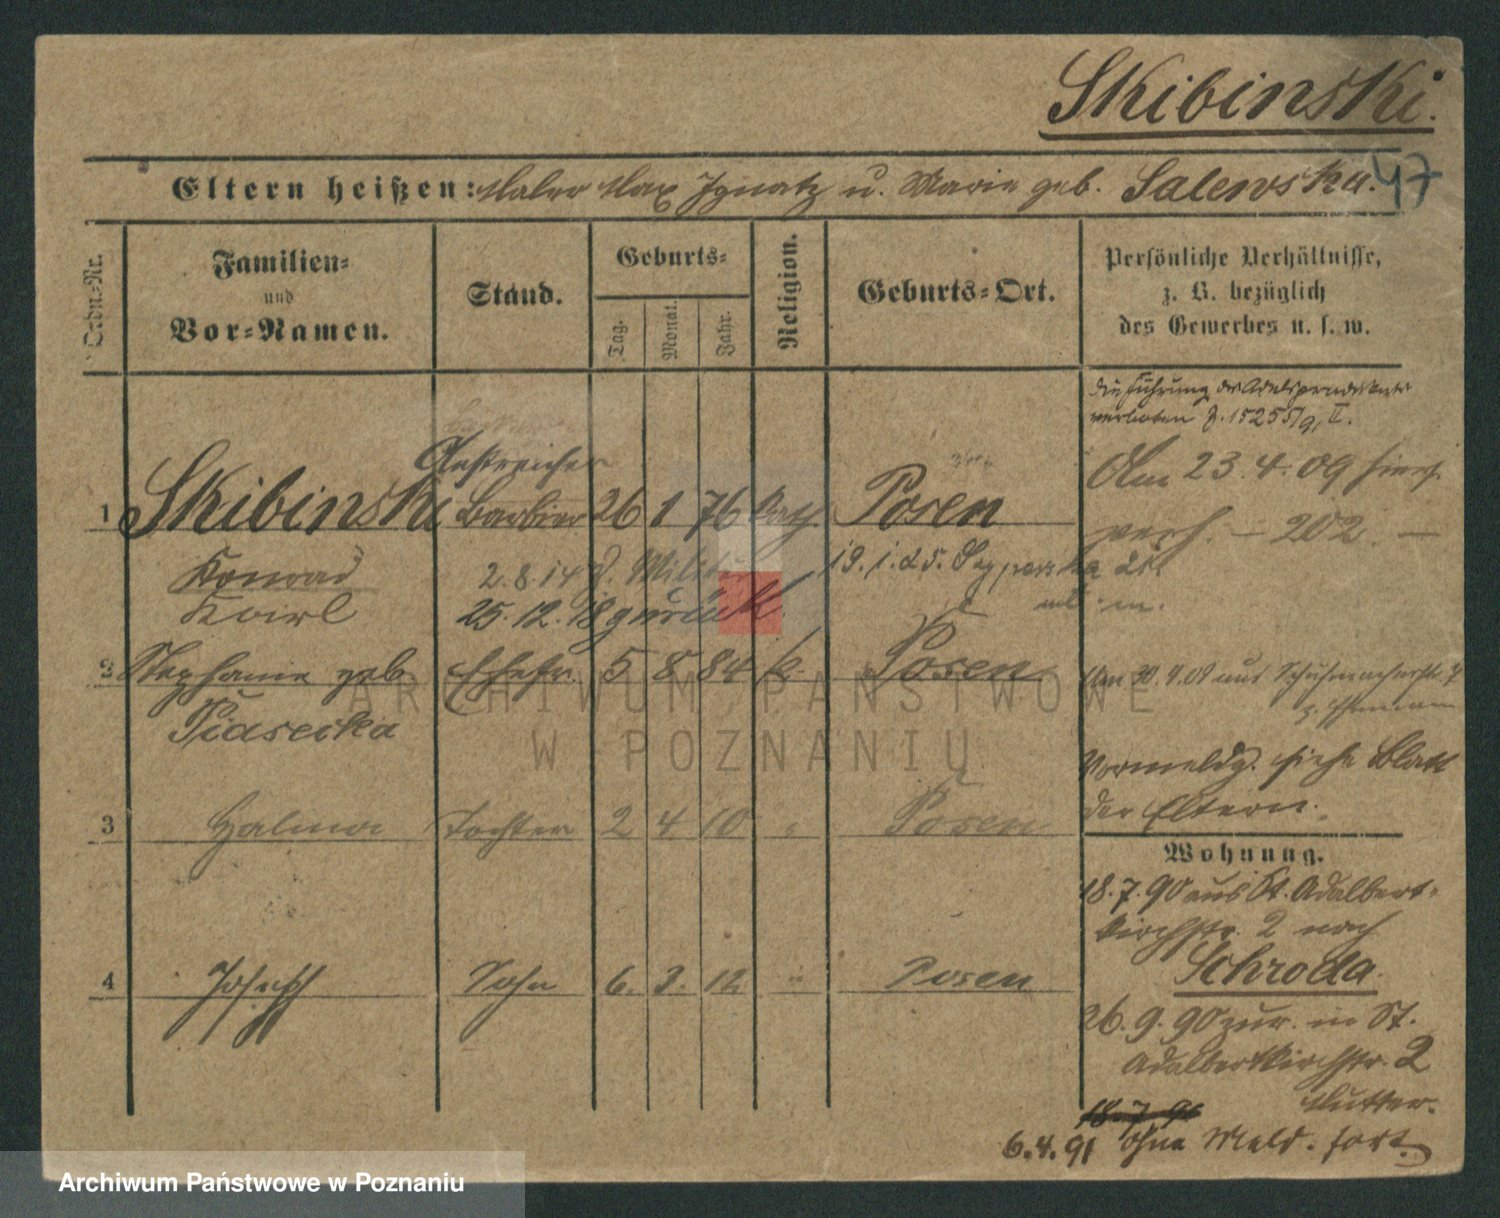 Skibinski.
47
Eltern heißen: Maler Max Ignatz u. Marie geb. Salewska.
Ordn.-Nr.
Familien-
und
Vor-Namen.
Stand.
Geburts-
Tag.
Monat.
Jahr.
Religion.
Geburts-Ort.
Persönliche Verhältnisse,
z. B. bezüglich
des Gewerbes u. s. w.
die Führung des Adelsprädikats
verboten J. 15255/9, II.
Anstreicher
1 Skibinski Barbier 26 1 76 kath. Posen
Am 23.4.09 hier
verh. — 202. —
Konrad
Karl
2.8.14 z. Militär
25.12.18 zurück
19.1.25.
2 Stephanie geb. Ehefr. 5 8 84 k. Posen
Piasecka
Vormeldg. siehe Blatt
der Eltern.
3 Halina Tochter 2 4 10 " Posen
Wohnung.
18.7.90 aus St. Adalbert-
kirchstr. 2 nach
Schroda.
4 Joseph Sohn 6. 3. 12 " Posen
26.9.90 zur. in St.
Adalbertkirchstr. 2
Mutter.
18.7.91
6.4.91 ohne Meld. fort.
ARCHIWUM PAŃSTWOWE
W POZNANIU
Archiwum Państwowe w Poznaniu